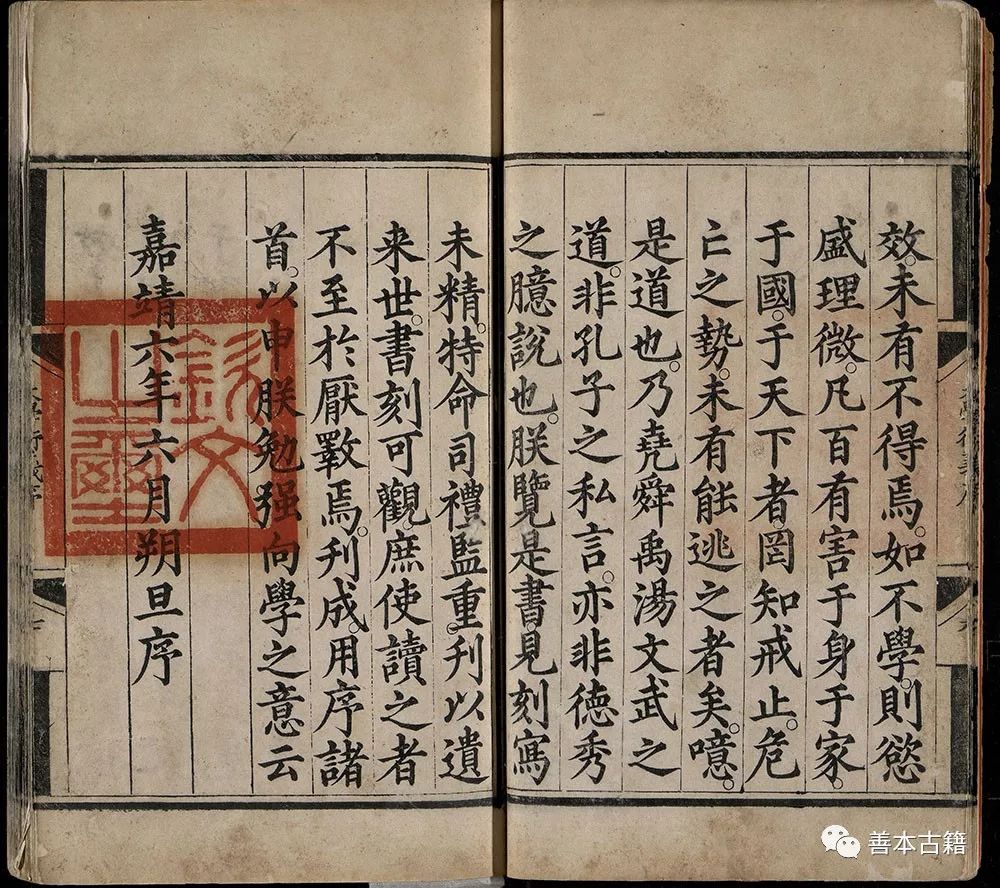 效。未有不得焉。如不學。則慾
盛理微。凡百有害于身于家。
于國。于天下者罔知戒止。危
亡之勢。未有能逃之者矣。噫。
是道也。乃堯舜禹湯文武之
道。非孔子之私言。亦非德秀
之臆說也。朕覽是書見刻寫
未精。特命司禮監重刊以遺
来世。書刻可觀庶使讀之者
不至於厭斁焉。刋成。用序諸
首。以申朕勉强向學之意云
嘉靖六年六月朔旦序
欽文
之璽
善本古籍